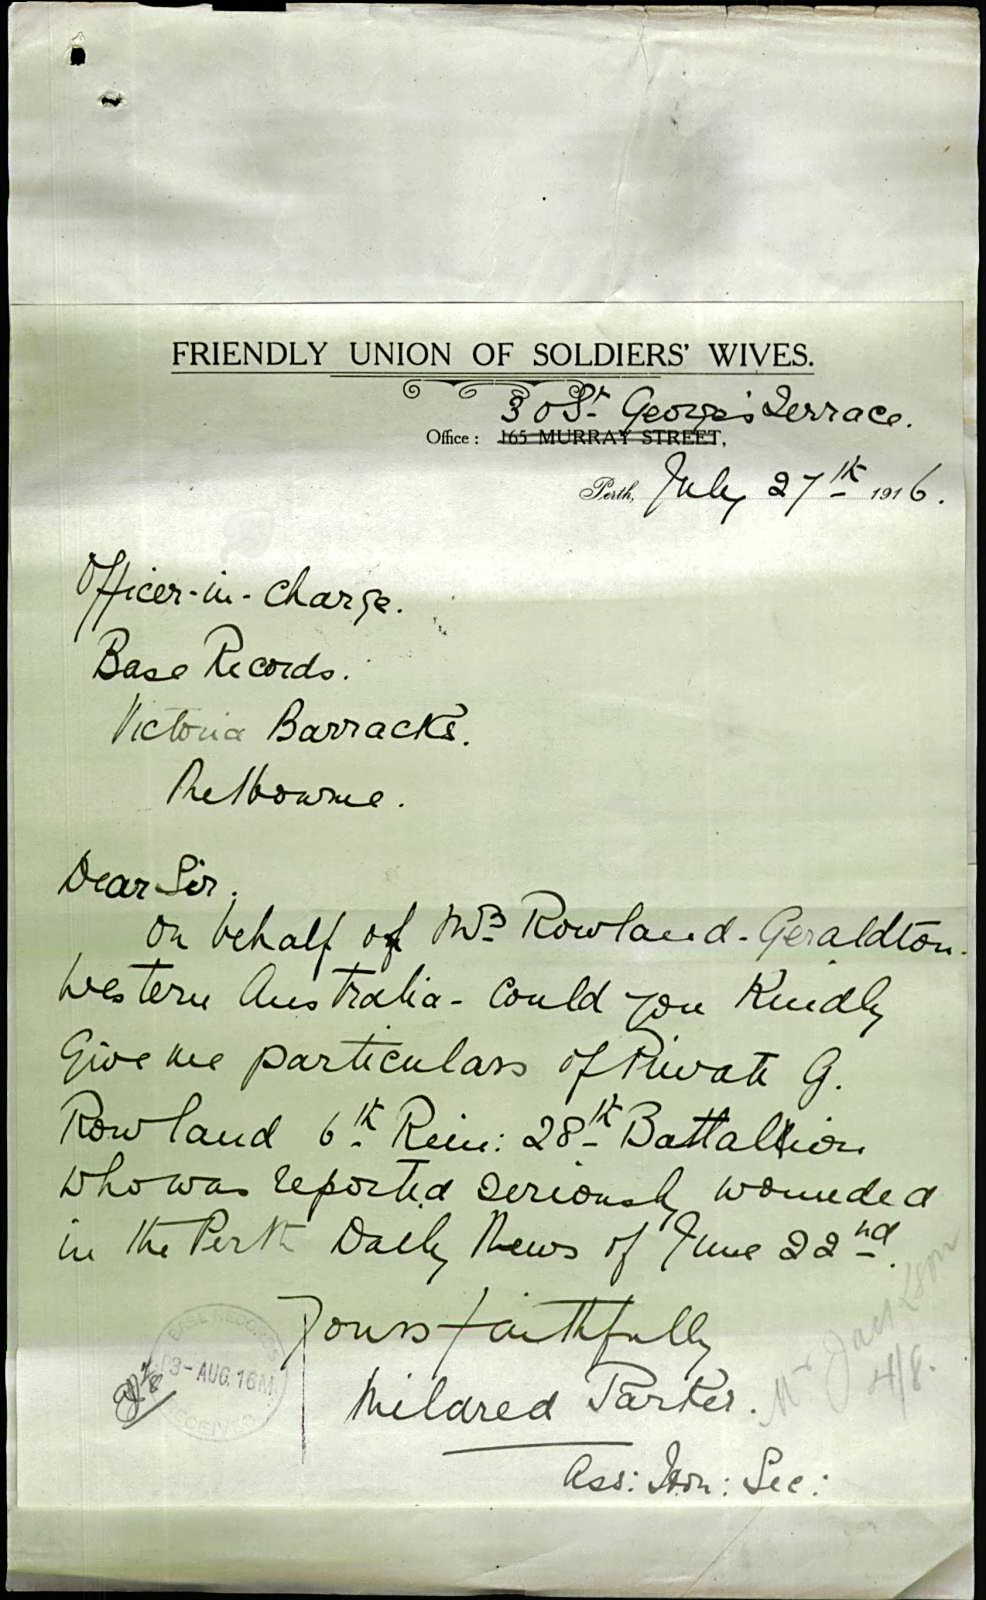 FRIENDLY UNION OF SOLDIERS' WIVES.
30 St. George's Terrace.
Office : 165 MURRAY STREET,
Perth, July 27th 1916.
Officer-in-Charge.
Base Records.
Victoria Barracks.
Melbourne.
Dear Sir.
On behalf of Mrs Rowland - Geraldton.
Western Australia - Could you Kindly
Give me particulars of Private G.
Rowland 6th Rein: 28th Battallion
who was reported seriously wounded
in the Perth Daily News of June 22nd.
Yours faithfully
Mildred Parker.
Ass: Hon: Sec:
BASE RECORDS
3 - AUG. 16
Mr Jackson
4/8.